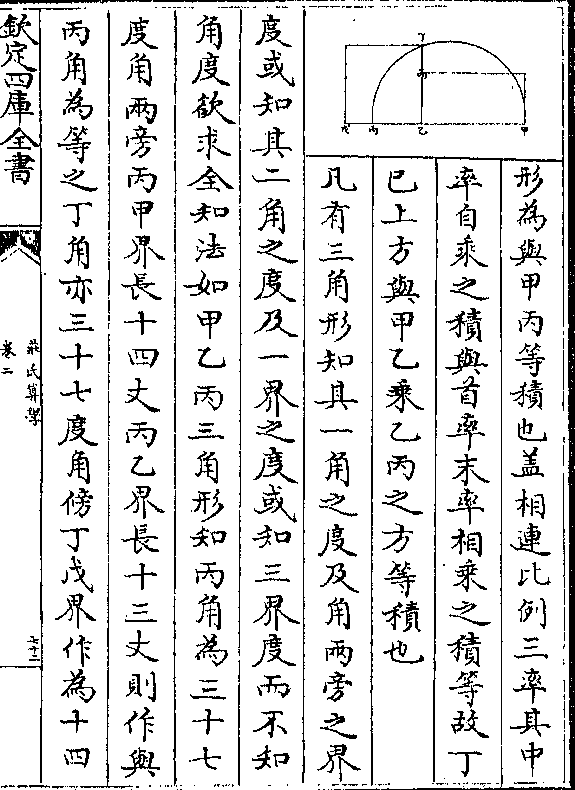 形為與甲丙等積也蓋相連比例三率其中
率自乘之積與首率末率相乘之積等故丁
巳上方與甲乙乘乙丙之方等積也
凡有三角形知其一角之度及角兩旁之界
度或知其二角之度及一界之度或知三界度而不知
角度欲求全知法如甲乙丙三角形知丙角為三十七
度角兩旁丙甲界長十四丈丙乙界長十三丈則作與
丙角為等之丁角亦三十七度角傍丁戊界作為十四
欽定四庫全書
莊氏算學
卷二
七十二
丁
乙
丙
戊
甲